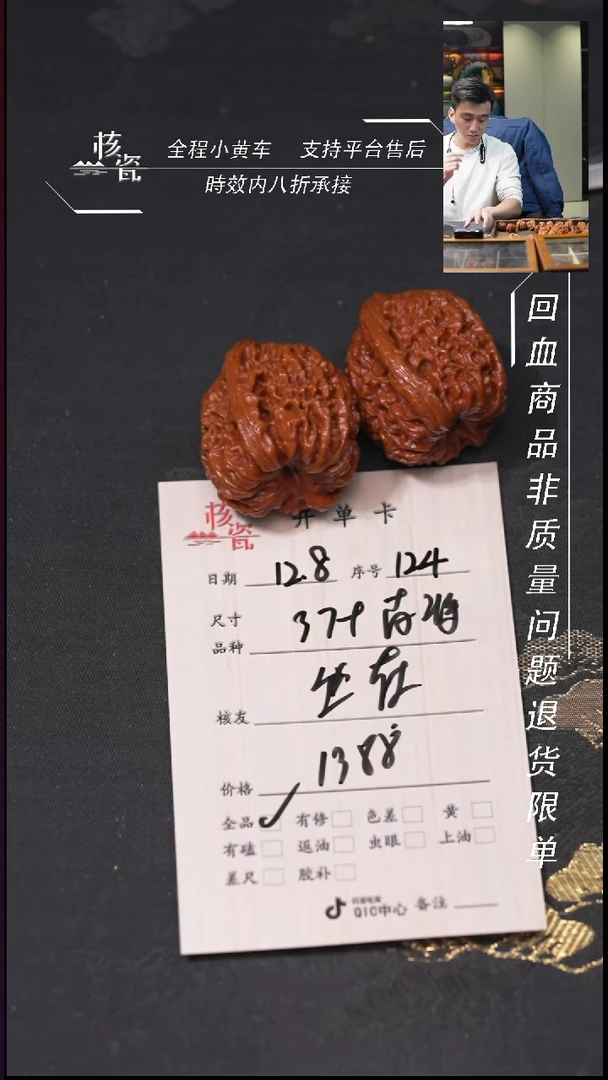 核瓷
全程小黄车 支持平台售后
時效内八折承接
回血商品非质量问题退货限单
核瓷 开单卡
日期 12.8 序号 124
尺寸 37+
品种
核友
价格 1388
全品 ✓ 有修 色差 黄
有磕 返油 虫眼 上油
差尺 胶补
QIC中心 备注